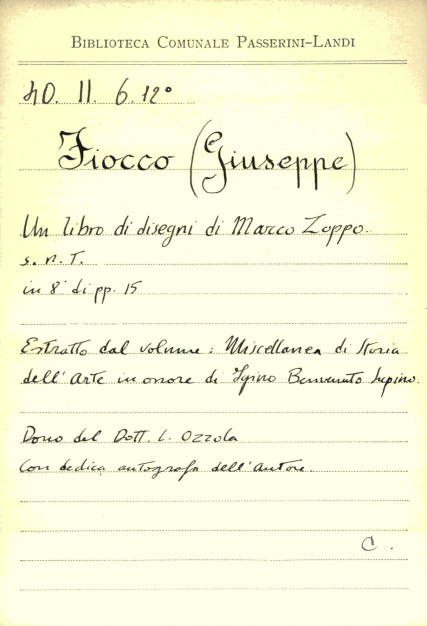 BIBLIOTECA COMUNALE PASSERINI-LANDI
40. II. 6. 12°
Fiocco (Giuseppe)
Un libro di disegni di Marco Zoppo.
s. n. T.
in 8° di pp. 15
Estratto dal volume: Miscellanea di Storia
dell'Arte in onore di Igino Benvenuto Supino.
Dono del Dott. L. Ozzola
Con dedica autografa dell'Autore.
C.